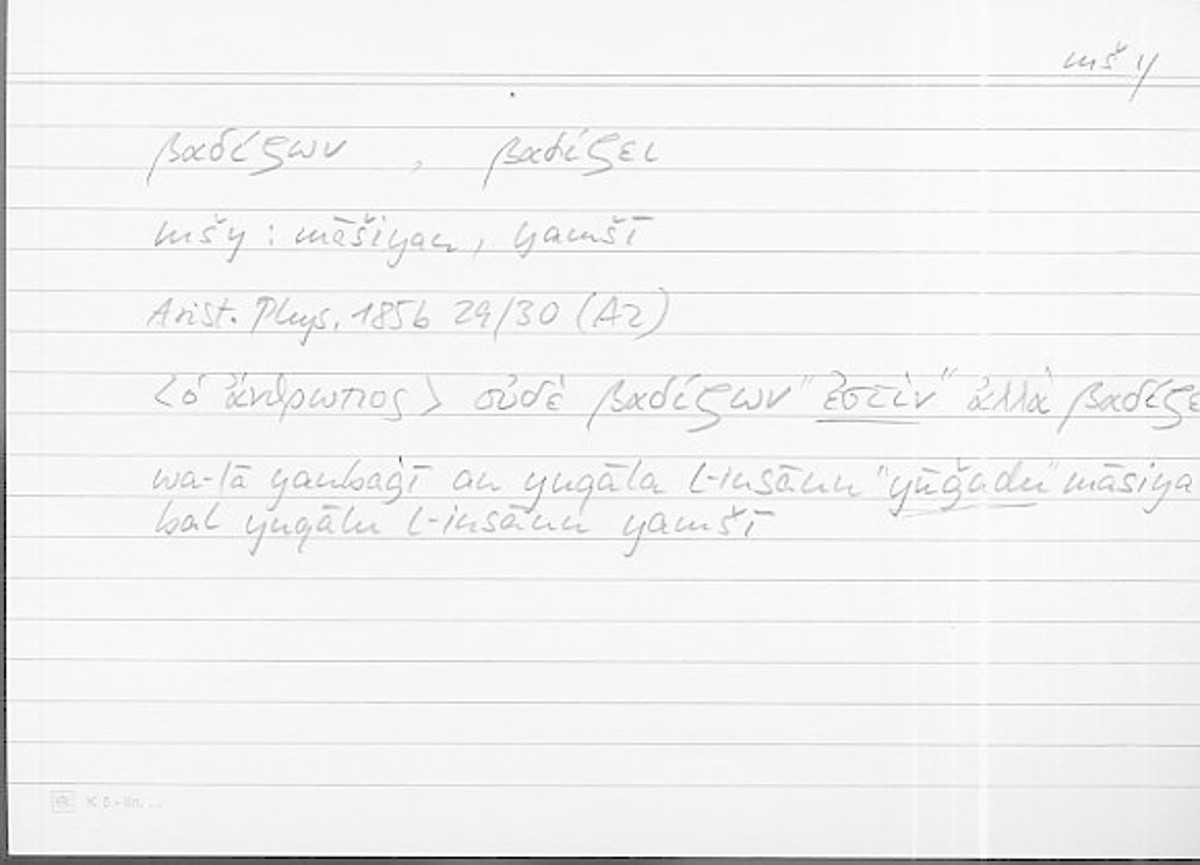 mšy
βαδίζων , βαδίζει
mšy : māšiyan, yamšī
Arist. Phys. 185b 29/30 (A2)
<ὁ ἄνθρωπος> οὐδὲ βαδίζων "ἐστὶν" ἀλλὰ βαδίζε
wa-lā yanbaġī an yuqāla l-insānu "yūǧadu" māšiya
bal yuqālu l-insānu yamšī